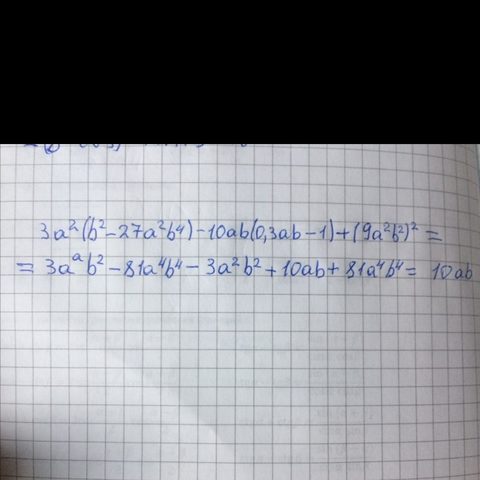 3a²(b²-27a²b⁴)-10ab(0,3ab-1)+(9a²b²)²=
= 3aᵃb²-81a⁴b⁴-3a²b²+10ab+81a⁴b⁴= 10ab